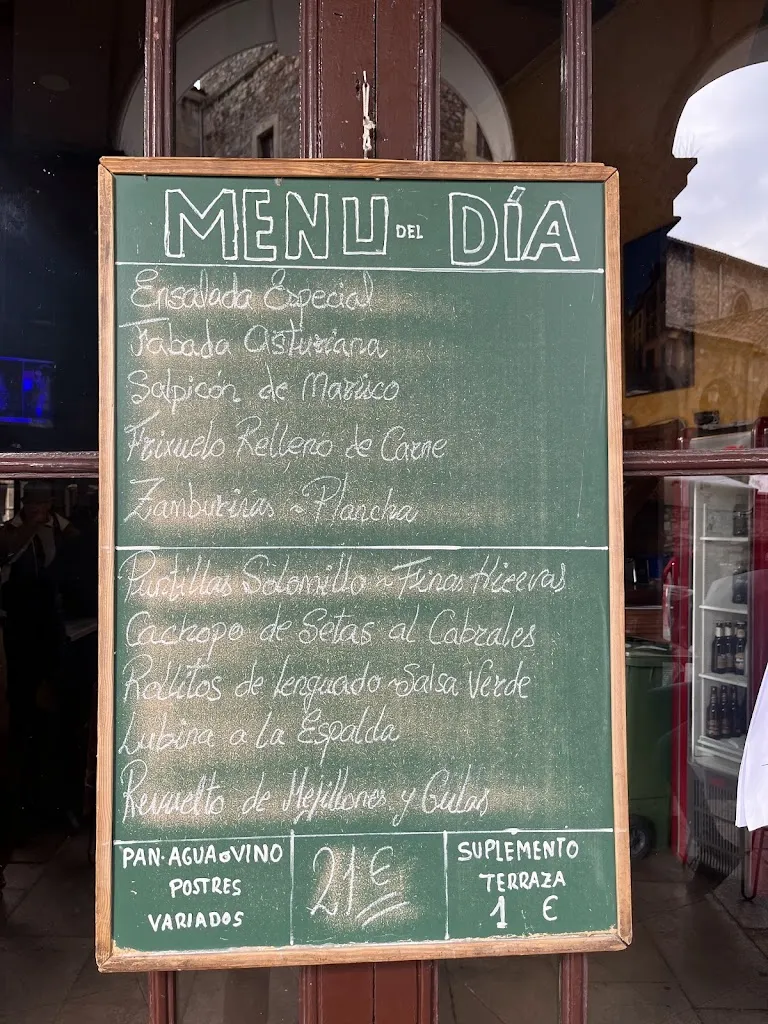 MENU DEL DÍA
Ensalada Especial
Fabada Asturiana
Salpicón de Marisco
Frixuelo Relleno de Carne
Zamburiñas ~ Plancha
Puntillas Solomillo ~ Finas Hiervas
Cachopo de Setas al Cabrales
Rollitos de Lenguado ~ Salsa Verde
Lubina a la Espalda
Revuelto de Mejillones y Gulas
PAN·AGUA o VINO
POSTRES
VARIADOS
21 €
SUPLEMENTO
TERRAZA
1 €